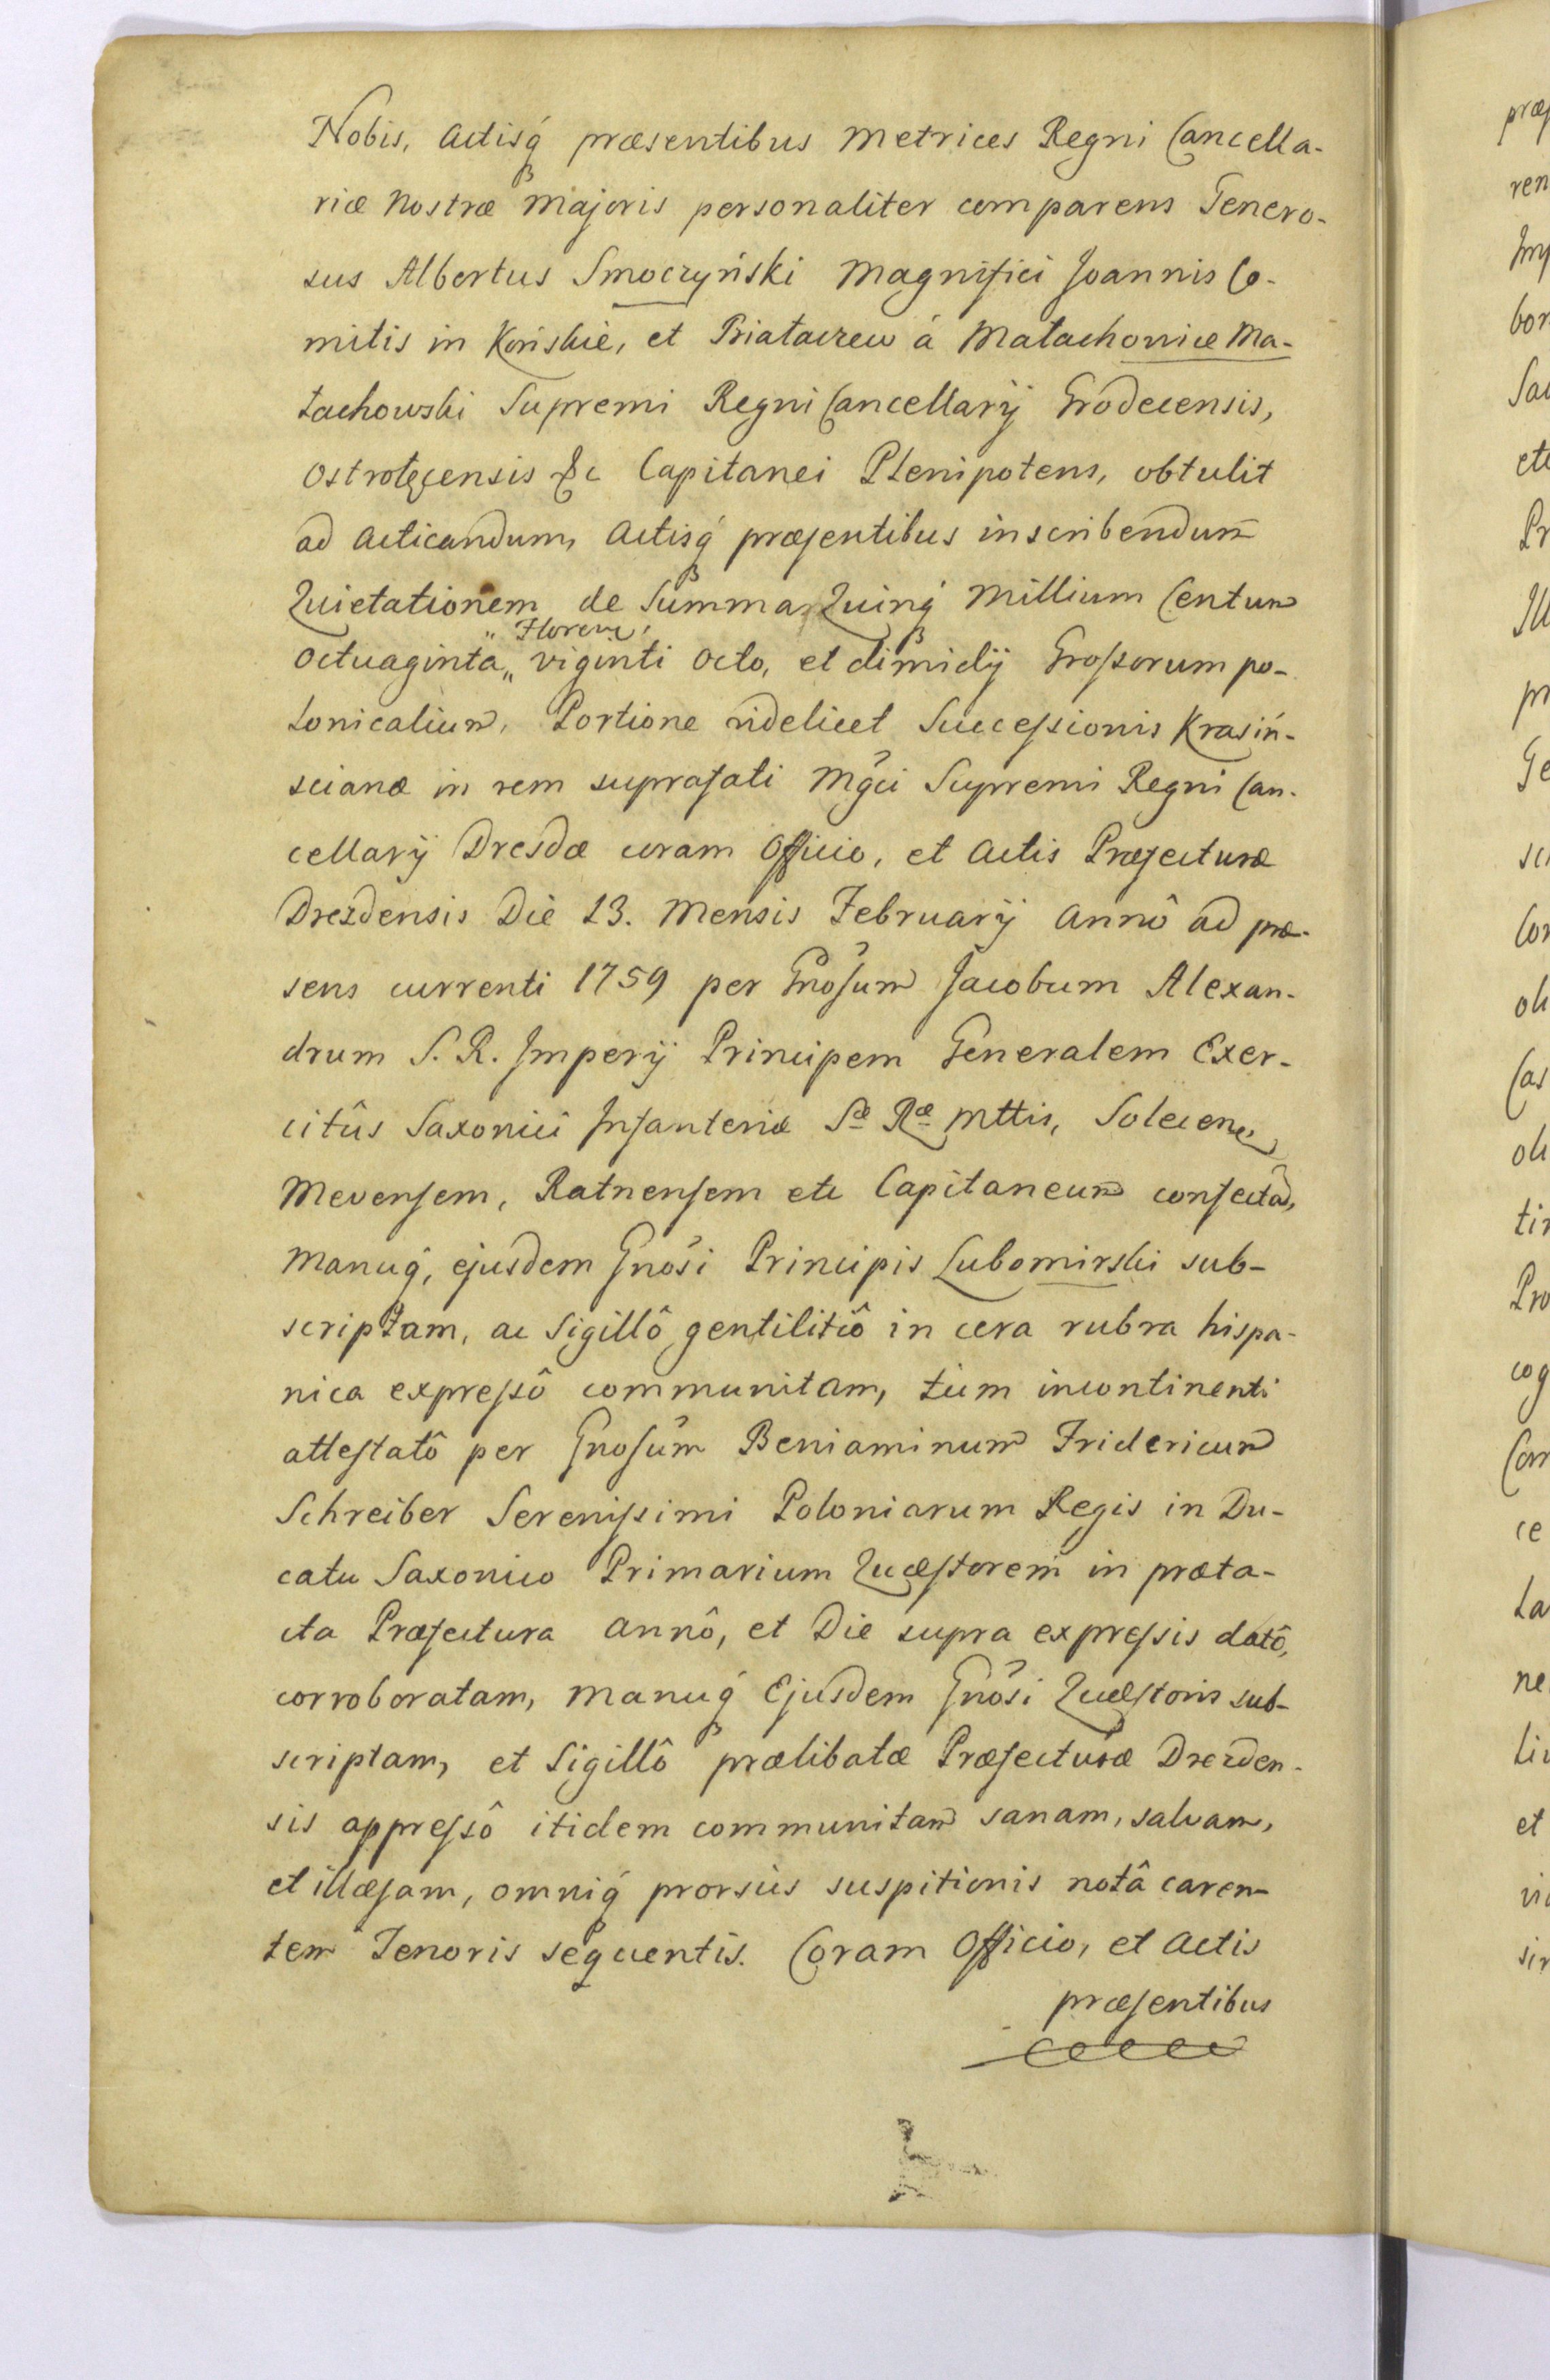 Nobis, Actisq́ præsentibus Metrices Regni Cancella-
riæ Nostræ Majoris personaliter comparens Genero-
sus Albertus Smoczyński Magnifici Joannis Co-
mitis in Końskie, et Białaczew á Małachowice Ma-
łachowski Supremi Regni Cancellarÿ Grodecensis,
Ostrołęcensis &c Capitanei Plenipotens, obtulit
ad Acticandum, Actisq́ præsentibus inscribendum̄
Quietationem de Summa Quinq́ Millium Centum
Octuaginta „ Floreni, viginti Octo, et dimidÿ Grossorum po-
lonicalium, Portione videlicet Successionis Krasiń-
scianæ in rem supra fati Mgci Supremi Regni Can-
cellarÿ Dresdæ coram Officio, et Actis Præfecturæ
Drezdensis Die 13. Mensis Februarÿ Annô ad præ-
sens currenti 1759 per Gnosum Jacobum Alexan-
drum S. R. Imperÿ Principem Generalem Exer-
citûs Saxonici Infanteriæ Sæ Ræ Mttis, Solecen,
Mevensem, Ratnensem etc Capitaneum confectã,
Manuq́, ejusdem Gnosi Principis Lubomirski sub-
scriptam, ac Sigillô gentilitiô in cera rubra hispa-
nica expressô communitam, tum incontinenti
attestatô per Gnosum Beniaminum Fridericum
Schreiber Serenissimi Poloniarum Regis in Du-
catu Saxonico Primarium Quæstorem in præta-
cta Præfectura Annô, et Die supra expressis datô,
corroboratam, Manuq́ Ejusdem Gnosi Quæstoris sub-
scriptam, et Sigillô prælibatæ Præfecturæ Drezden-
sis appressô itidem communitam sanam, salvam,
et illæsam, omniq́ prorsùs suspitionis notâ caren-
tem Tenoris sequentis. Coram Officio, et Actis
præsentibus